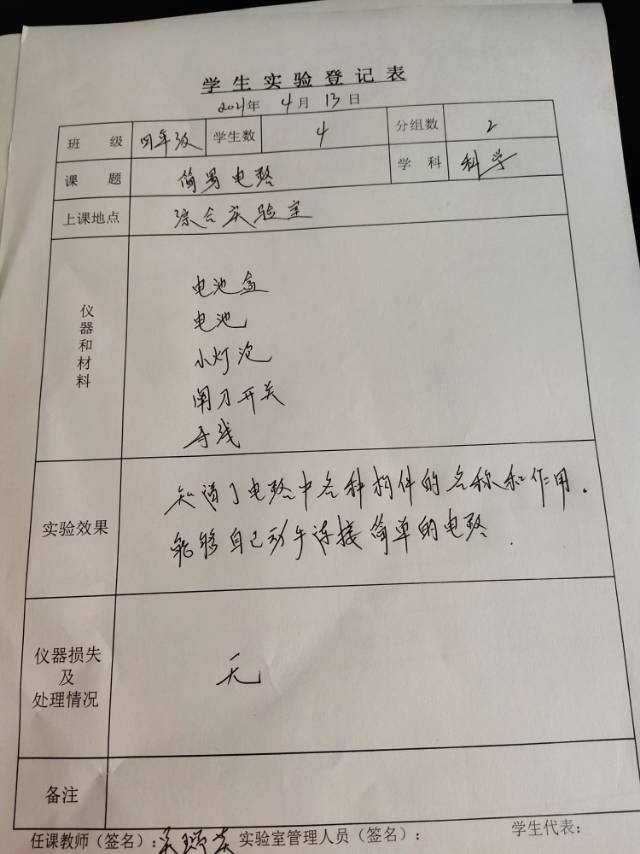 学生实验登记表
2021年 4月 13日
班级 四年级 学生数 4 分组数 2
课题 简易电路 学科 科学
上课地点 综合实验室
仪器和材料
电池盒
电池
小灯泡
闸刀开关
导线
实验效果
知道了电路中各种构件的名称和作用.
能够自己动手连接简单的电路.
仪器损失
及
处理情况
无
备注
任课教师(签名): 实验室管理人员(签名): 学生代表: